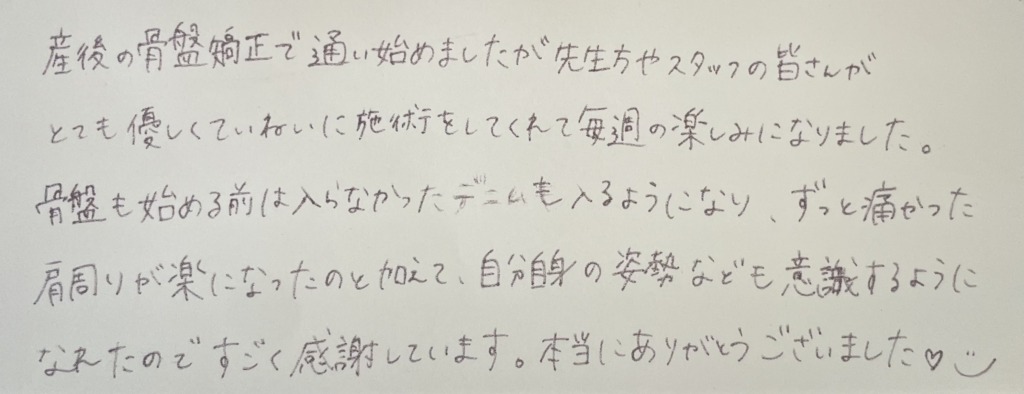 産後の骨盤矯正で通い始めましたが先生方やスタッフの皆さんが
とても優しくていねいに施術をしてくれて毎週の楽しみになりました。
骨盤も始める前は入らなかったデニムも入るようになり、ずっと痛かった
肩周りが楽になったのと加えて、自分自身の姿勢なども意識するように
なれたのですごく感謝しています。本当にありがとうございました♡